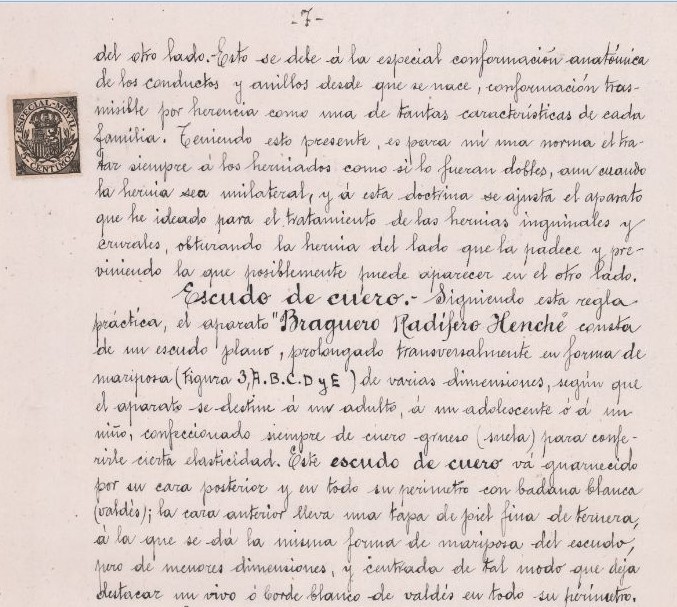 -7-
del otro lado.-Esto se debe á la especial conformación anatómica
de los conductos y anillos desde que se nace, conformación tras-
misible por herencia como una de tantas características de cada
familia. Teniendo esto presente, es para mi una norma el tra-
tar siempre á los herniados como si lo fueran dobles, aun cuando
la hernia sea unilateral, y á esta doctrina se ajusta el aparato
que he ideado para el tratamiento de las hernias inguinales y
crurales, obturando la hernia del lado que la padece y pre-
viniendo la que posiblemente puede aparecer en el otro lado.
Escudo de cuero.- Siguiendo esta regla
práctica, el aparato "Braguero Radífero Henché" consta
de un escudo plano, prolongado transversalmente en forma de
mariposa (figura 3, A.B.C.D y E) de varias dimensiones, según que
el aparato se destine á un adulto, á un adolescente ó á un
niño, confeccionado siempre de cuero grueso (suela) para confe-
rirle cierta elasticidad. Este escudo de cuero vá guarnecido
por su cara posterior y en todo su perimetro con badana blanca
(valdés); la cara anterior lleva una tapa de piel fina de ternera,
á la que se dá la misma forma de mariposa del escudo,
pero de menores dimensiones, y centrada de tal modo que deja
destacar un vivo ó borde blanco de valdés en todo su perímetro.
ESPECIAL MOVIL
CENTIMOS